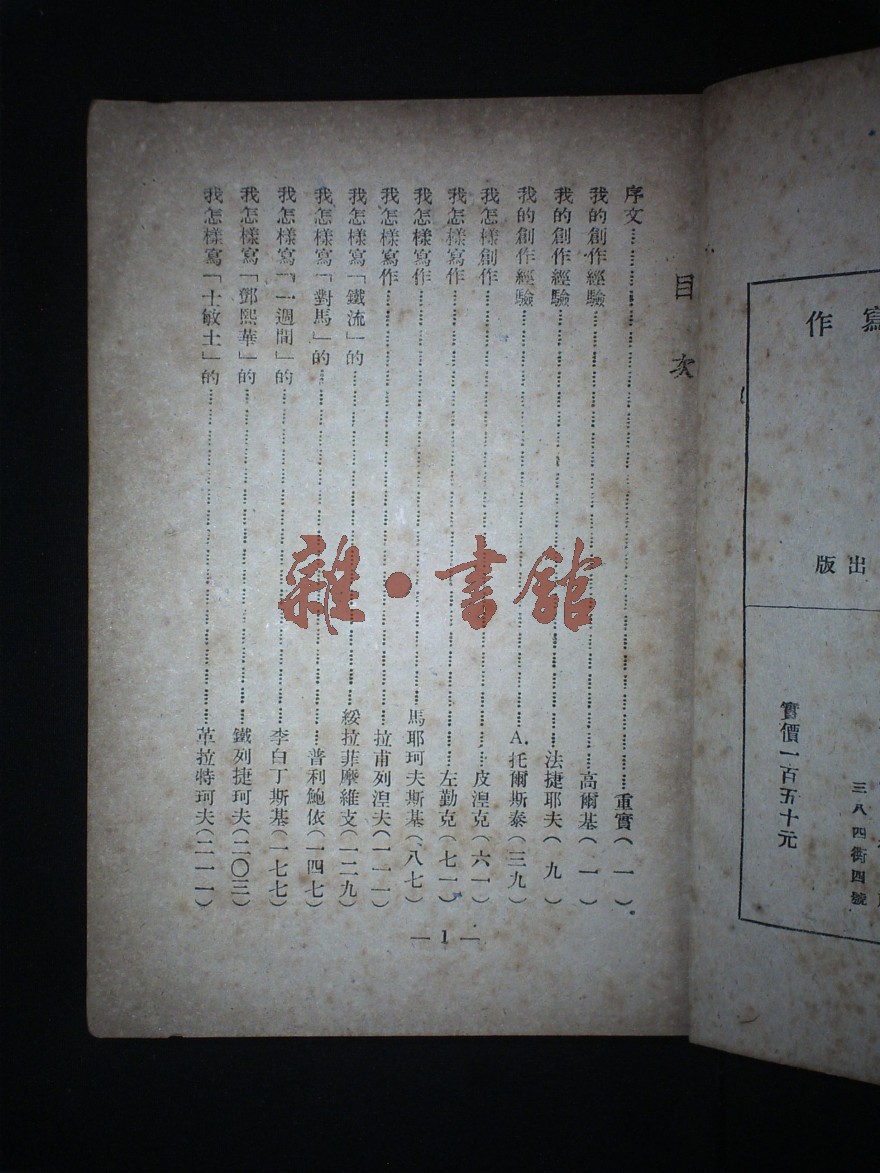 寫
作
出版
實價一百五十元
三八四街四號
目次
序文……重實(一)
我的創作經驗……高爾基(一)
我的創作經驗……法捷耶夫(九)
我的創作經驗……A.托爾斯泰(三九)
我怎樣創作……皮涅克(六一)
我怎樣寫作……左勤克(七一)
我怎樣寫作……馬耶珂夫斯基(八七)
我怎樣寫作……拉甫列涅夫(一一一)
我怎樣寫「鐵流」的……綏拉菲摩維支(一二九)
我怎樣寫「對馬」的……普利鮑依(一四七)
我怎樣寫「一週間」的……李白丁斯基(一七七)
我怎樣寫「鄧熙華」的……鐵列捷珂夫(二〇三)
我怎樣寫「士敏土」的……革拉特珂夫(二一一)
—1—
雜·書館